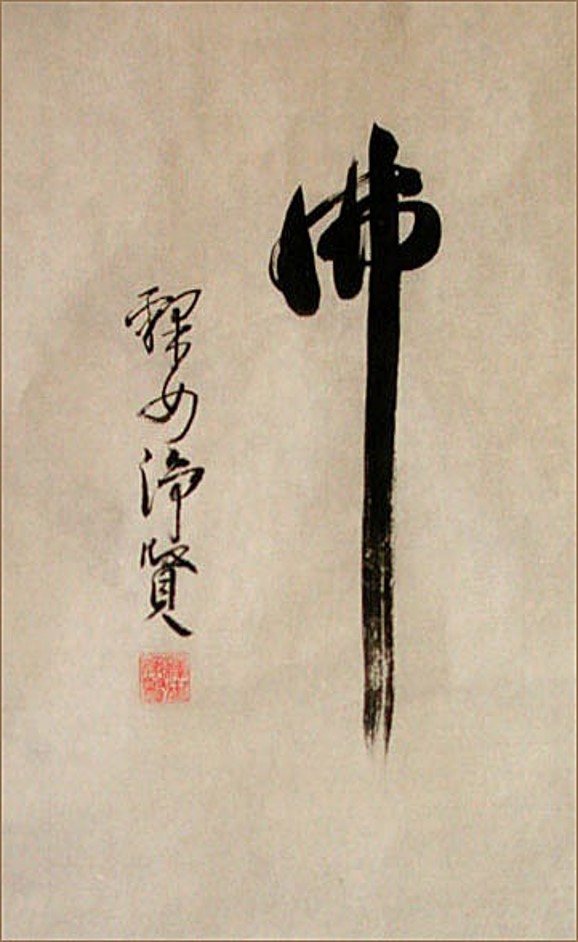 佛
釋女淨賢